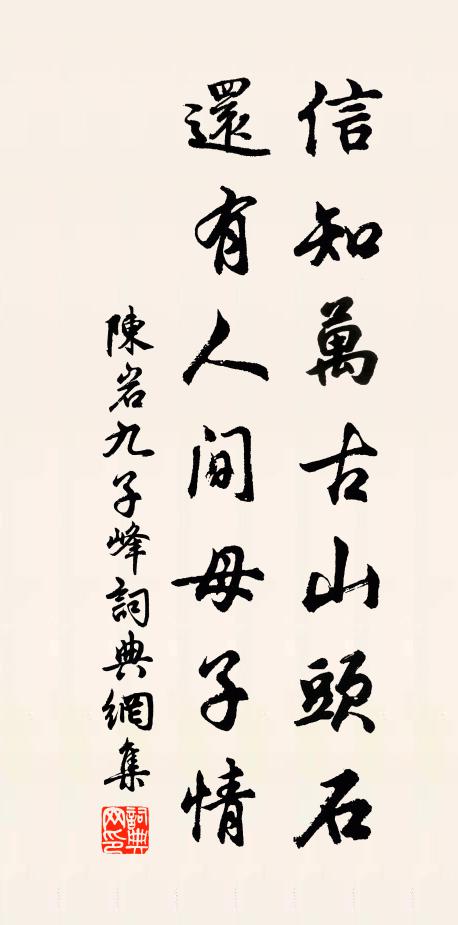 信知萬古山頭石
還有人間母子情
陳岩九子峰詞典網集
詞典網印